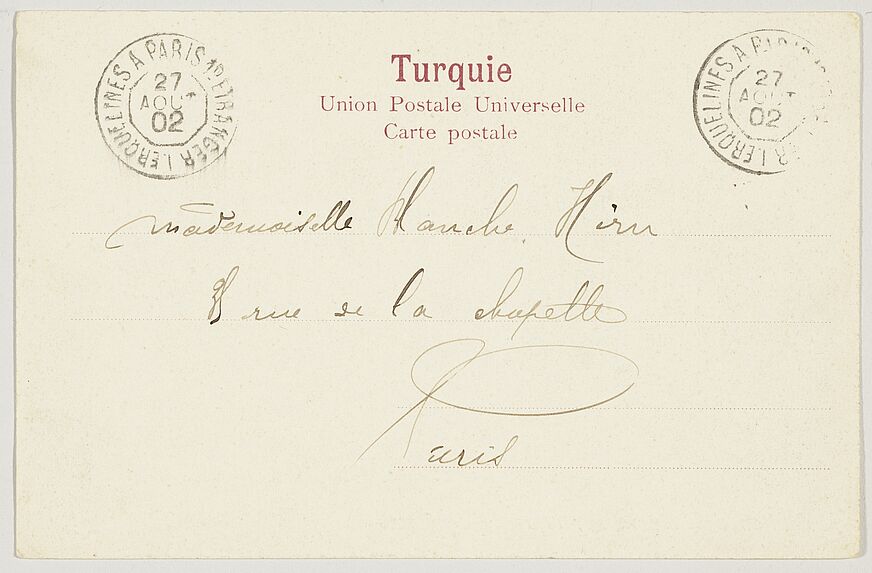 Turquie
Union Postale Universelle
Carte postale
ERQUELINES A PARIS 1º ETRANGER
27
AOUT
02
ERQUELINES A PARIS
27
AOUT
02
Mademoiselle Blanche Hirn
8 rue de la chapelle
Paris